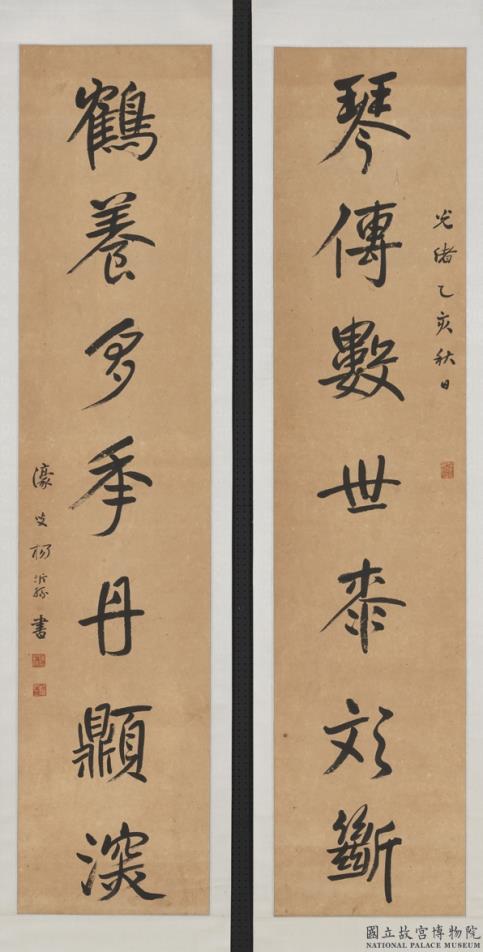 光緒乙亥秋日
琴傳數世桼彣斷
鶴養多年丹𩕢深
濠叟楊沂孫書
國立故宮博物院
NATIONAL PALACE MUSEUM